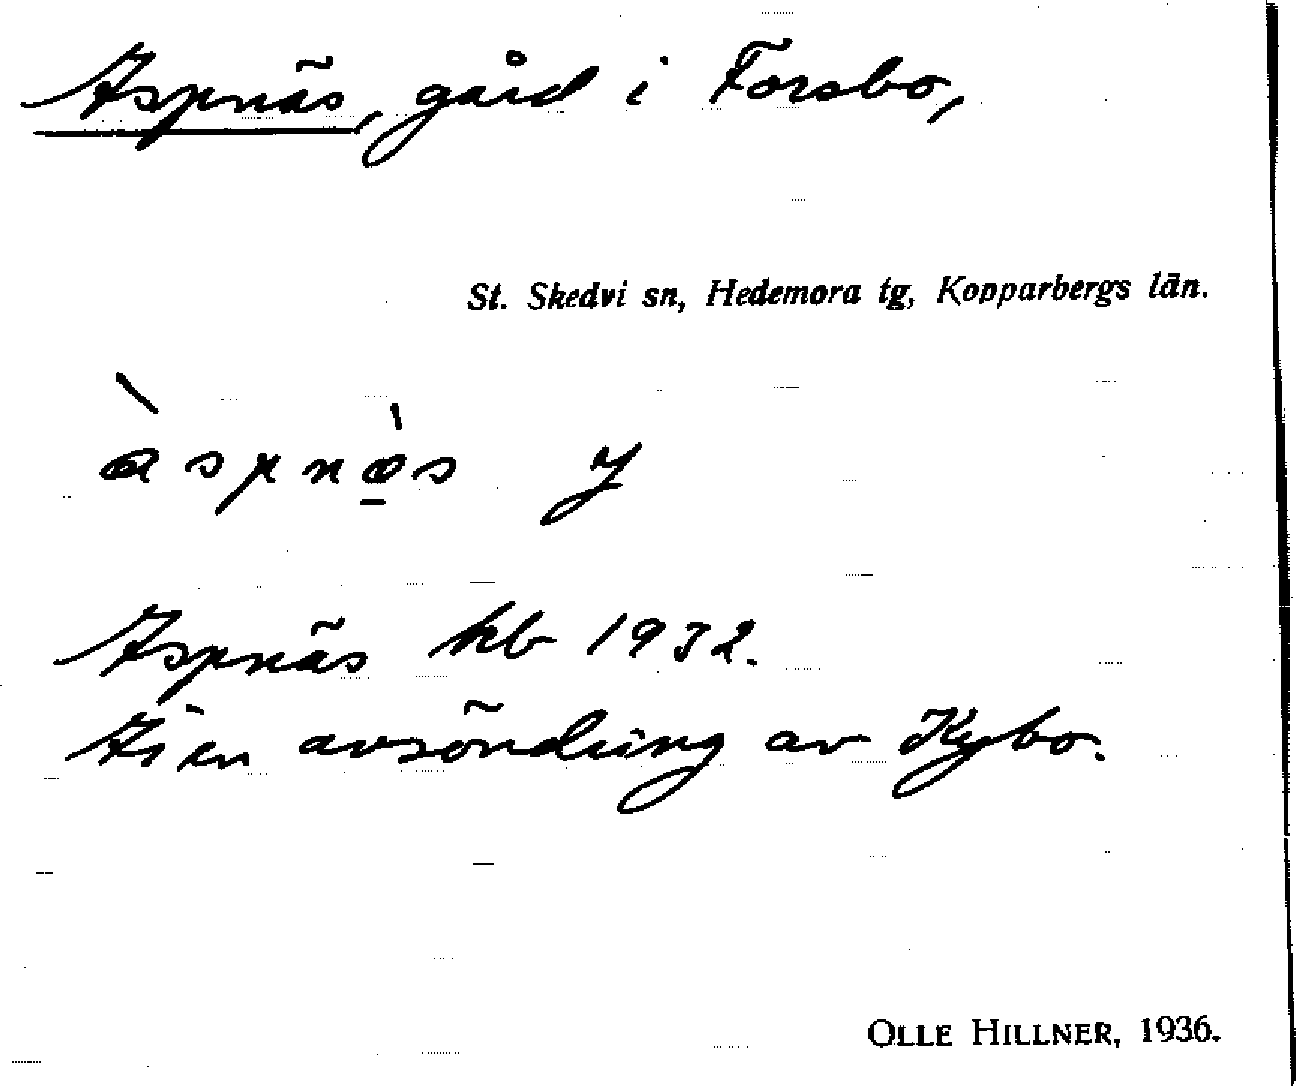 Aspnäs, gård i Forsbo,
St. Skedvi sn, Hedemora tg, Kopparbergs län.
àspnæ̀s y
Aspnäs kb 1932.
Är en avsöndring av Kybo.
OLLE HILLNER, 1936.